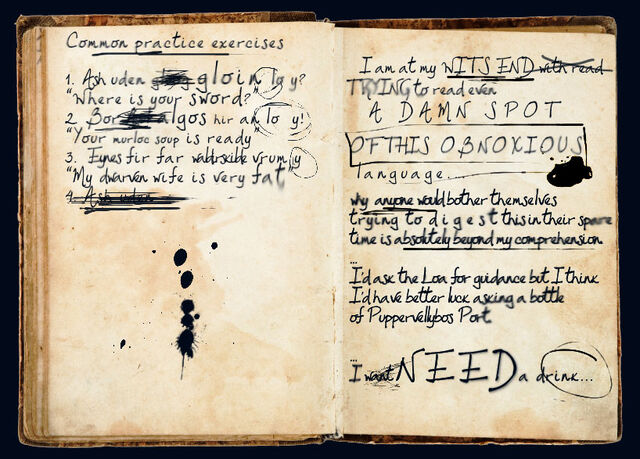 Common practice exercises
1. Ash uden gloin lo y?
"Where is your sword?"
2. Bor algos hir an lo y!
"Your murloc soup is ready"
3. Eynes fir far wadrside vrum y
"My dwarven wife is very fat"
4. Ash uden
I am at my WITS END with read
TRYING to read even
A DAMN SPOT
OF THIS OBNOXIOUS
language...
why anyone would bother themselves
trying to digest this in their spare
time is absolutely beyond my comprehension.
...
I'd ask the Loa for guidance but I think
I'd have better luck asking a bottle
of Puppervellybos Port
...
I want NEED a drink...